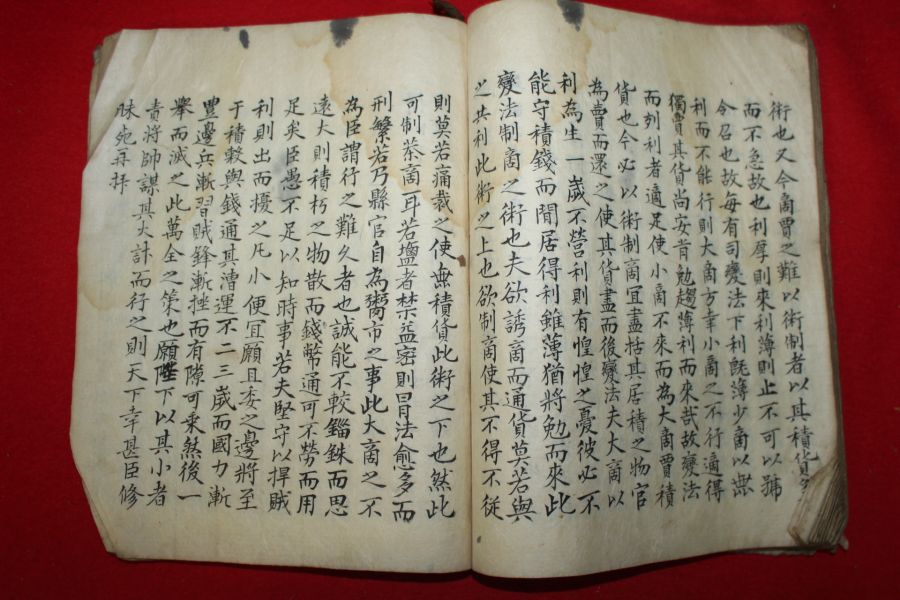 術也又今啇賈之難以術制者以其積貨多
而不急故也利厚則來利薄則止不可以號
令召也故每有司變法下利旣薄少啇以無
利而不能行則大啇方幸小啇之不行適得
獨賣其貨尚安肯勉趨薄利而來㢤故變法
而刻利者適足使小啇不來而為大啇賈積
貨也今必以術制啇宜盡括其居積之物官
為賣而還之使其貨盡而後變法夫大啇以
利為生一歲不營利則有惶惶之憂彼必不
能守積錢而閒居得利雖薄猶將勉而來此
變法制啇之術也夫欲誘啇而通貨莫若與
之共利此術之上也欲制啇使其不得不從
則莫若痛裁之使無積貨此術之下也然此
可制茶啇耳若塩者禁益密則冐法愈多而
刑繁若乃縣官自為鬻市之事此大啇之不
為臣謂行之難久者也誠能不較錙銖而思
遠大則積朽之物散而錢幣通可不勞而用
足矣臣愚不足以知時事若夫堅守以捍賊
利則出而擾之凡小便冝願且委之邊將至
于積糓與錢通其漕運不二三歲而國力漸
豊邊兵漸習賊鋒漸挫而有隙可乗然後一
舉而滅之此萬全之策也願陛下以其小者
責將帥謀其大計而行之則天下幸甚臣修
昧死再拜